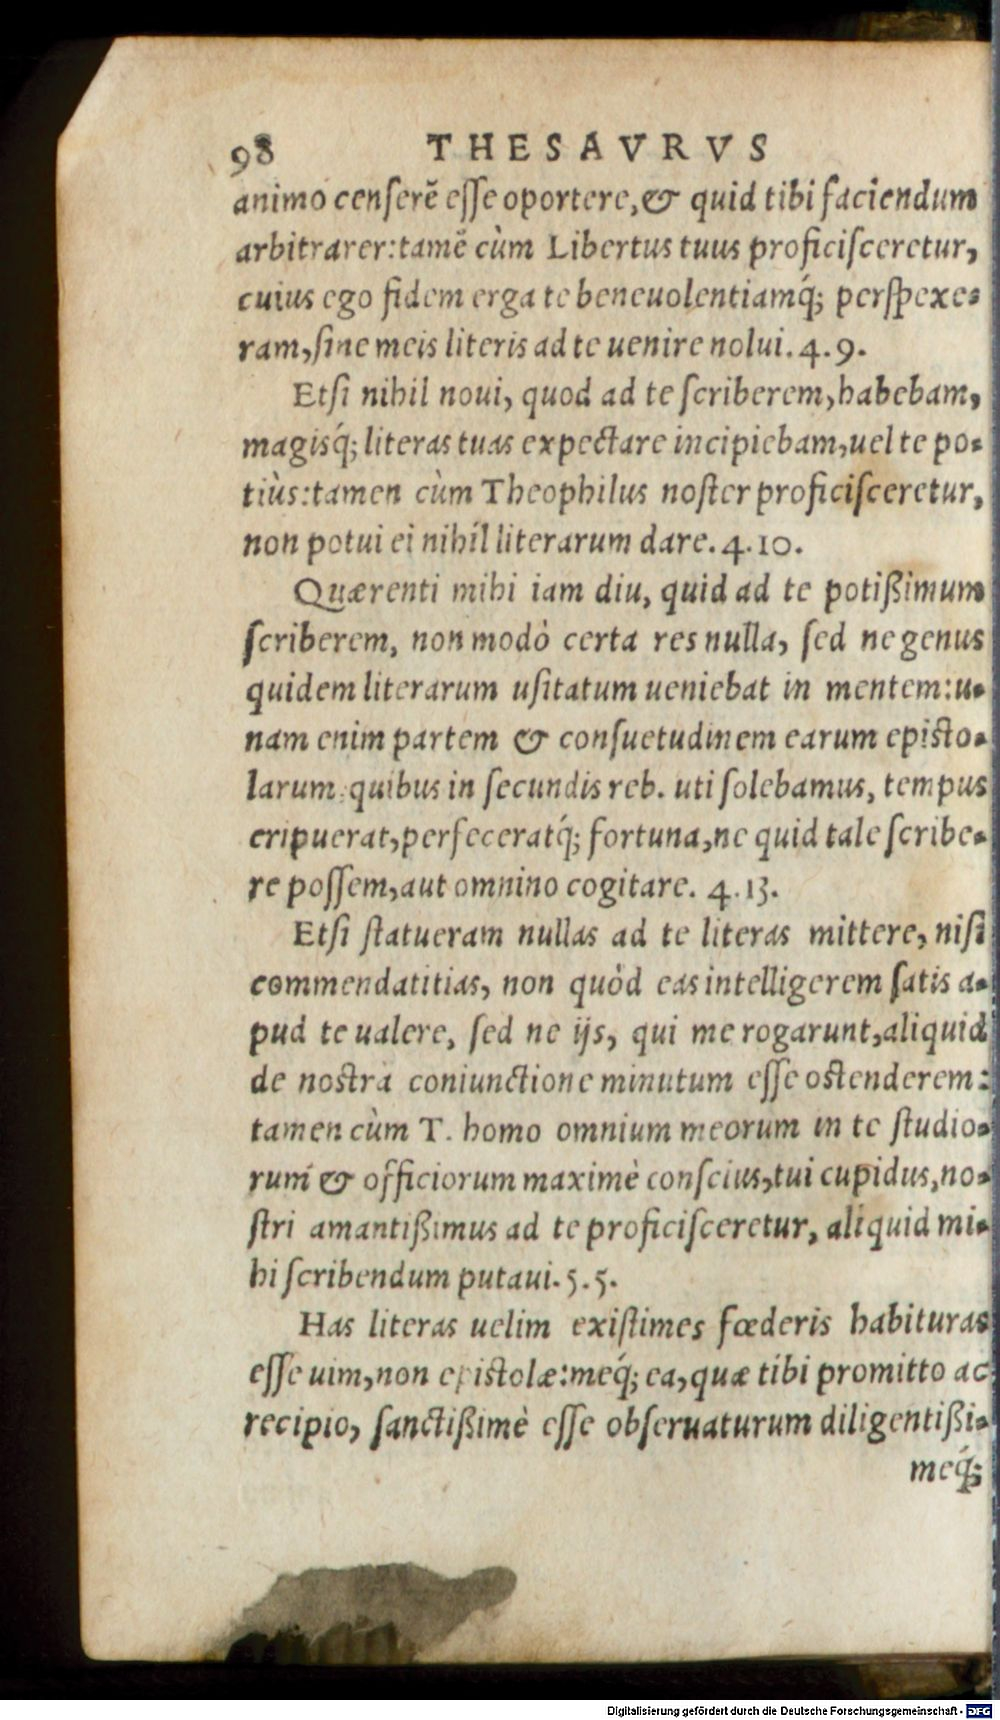 98 THESAVRVS
animo censerē esse oportere, & quid tibi faciendum
arbitrarer: tamē cùm Libertus tuus proficisceretur,
cuius ego fidem erga te beneuolentiamq́; perspexe-
ram, sine meis literis ad te uenire nolui. 4. 9.
Etsi nihil noui, quod ad te scriberem, habebam,
magisq́; literas tuas expectare incipiebam, uel te po-
tiùs: tamen cùm Theophilus noster proficisceretur,
non potui ei nihil literarum dare. 4. 10.
Quærenti mihi iam diu, quid ad te potißimum
scriberem, non modò certa res nulla, sed ne genus
quidem literarum usitatum ueniebat in mentem: u-
nam enim partem & consuetudinem earum episto-
larum quibus in secundis reb. uti solebamus, tempus
eripuerat, perfeceratq́; fortuna, ne quid tale scribe-
re possem, aut omnino cogitare. 4. 13.
Etsi statueram nullas ad te literas mittere, nisi
commendatitias, non quòd eas intelligerem satis a-
pud te ualere, sed ne ijs, qui me rogarunt, aliquid
de nostra coniunctione minutum esse ostenderem:
tamen cùm T. homo omnium meorum in te studio-
rum & officiorum maximè conscius, tui cupidus, no-
stri amantißimus ad te proficisceretur, aliquid mi-
hi scribendum putaui. 5. 5.
Has literas uelim existimes fœderis habituras
esse uim, non epistolæ: meq́; ea, quæ tibi promitto ac
recipio, sanctißimè esse obseruaturum diligentißi-
meq́;
Digitalisierung gefördert durch die Deutsche Forschungsgemeinschaft - DFG